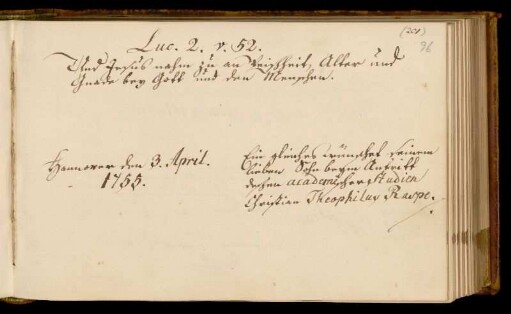 (201)
96
Luc. 2. v. 52.
Und Jesus nahm zu an Weißheit, Alter und
Gnade bey Gott und den Menschen.
Hannover den 3. April.
1755.
Ein gleiches wünschet seinem
lieben Sohn beym Antritt
dessen academischer Studien
Christian Theophilus Raspe.